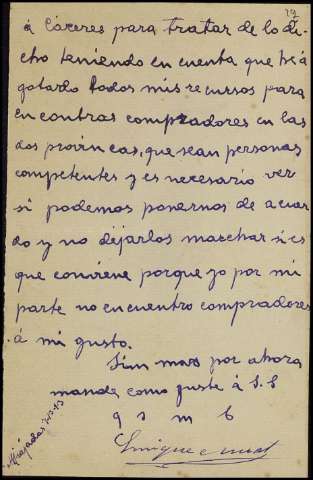 19
á Cáceres para tratar de lo di-
cho teniendo en cuenta que hé á
gotardo todos mis recursos para
encontras compradores en las
dos provincas, que sean personas
competentes y es necesario ver
si podemos ponernos de acuar
do y no dejarlos marchar si es
que conviene porque yo por mi
parte no encuentro compradores
á mi gusto.
Sin mas por ahora
mande como guste á S. S
q s m b
Enrique